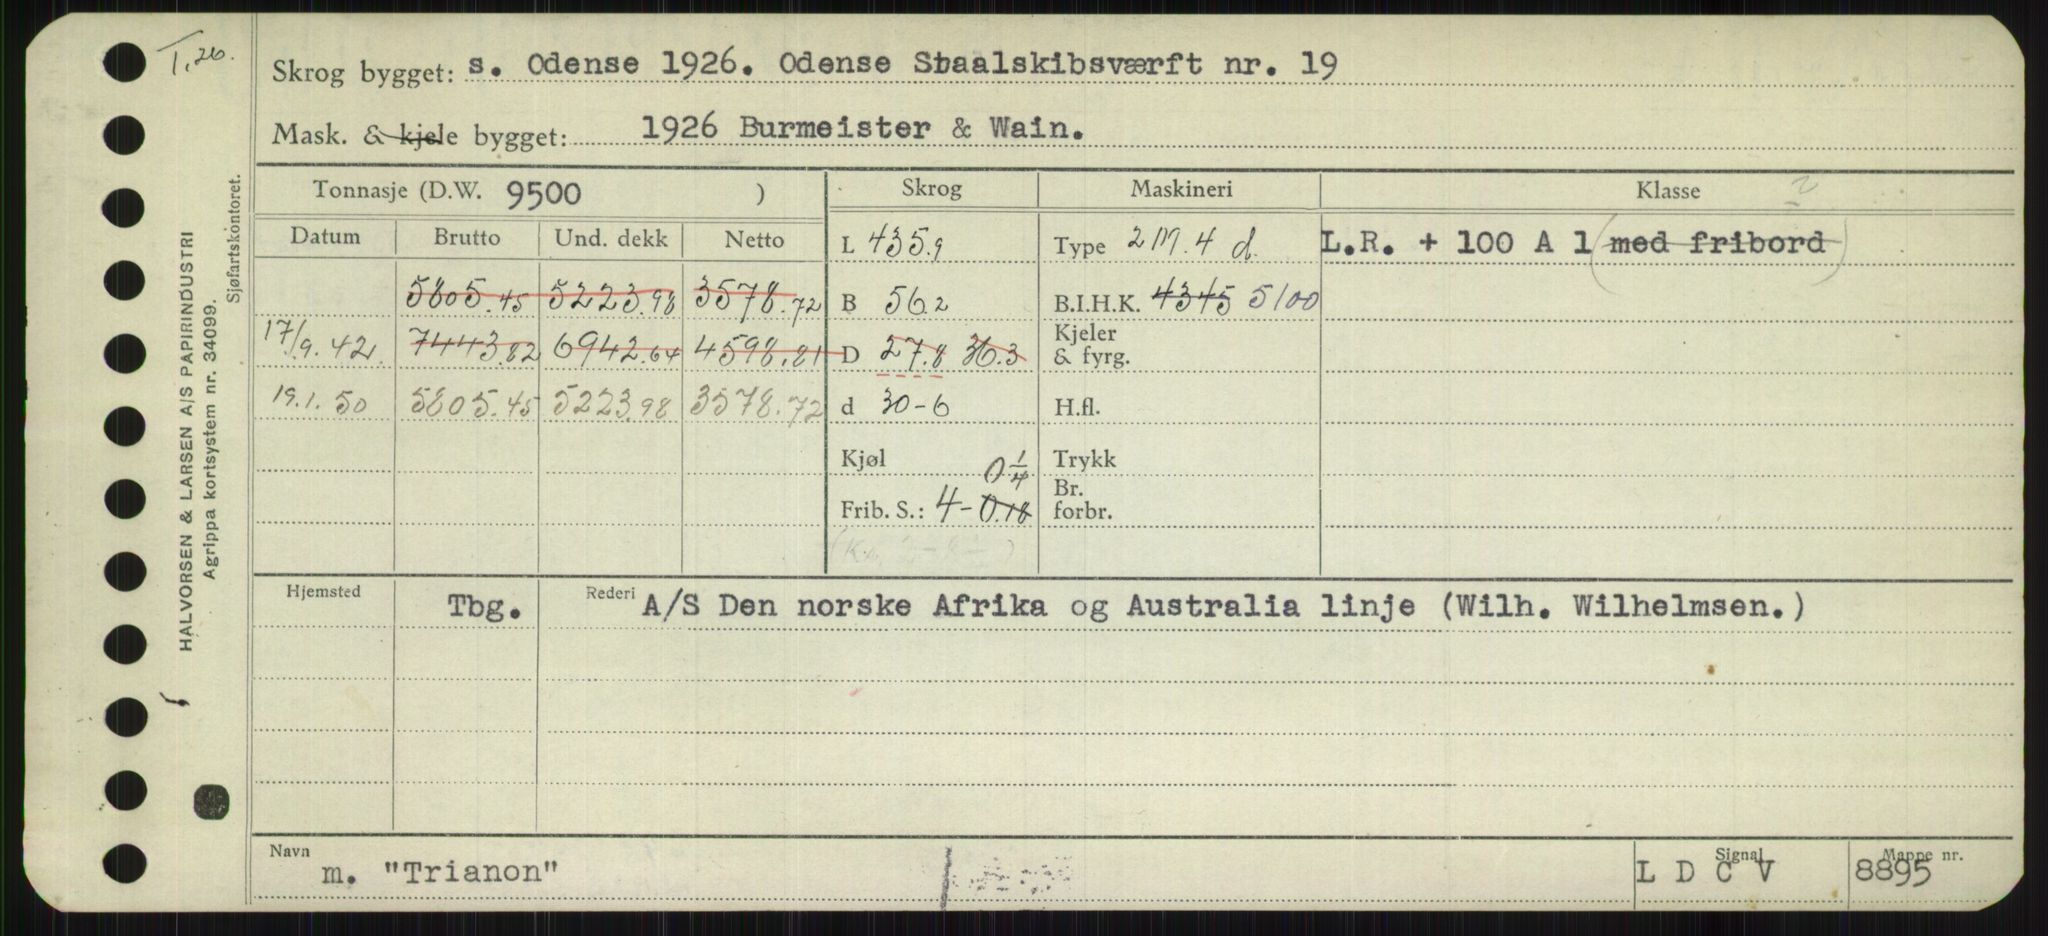 T. 26.
Skrog bygget: s. Odense 1926. Odense Staalskibsværft nr. 19
Mask. & kjele bygget: 1926 Burmeister & Wain.
HALVORSEN & LARSEN A/S PAPIRINDUSTRI
Agrippa kortsystem nr. 34099.
Sjøfartskontoret.
Tonnasje (D.W. 9500 ) Skrog Maskineri Klasse
Datum Brutto Und. dekk Netto L 435.9 Type 2 M. 4 d. L.R. + 100 A 1 (med fribord)
5805.45 5223.98 3578.72 B 56.2 B.I.H.K. 4345 5100
17/9.42. 7443.82 6942.64 4598.81 D 27.8 36.3 Kjeler & fyrg.
19.1.50 5805.45 5223.98 3578.72 d 30-6 H.fl.
Kjøl Trykk
Frib. S.: 4-0.18 0 1/4 Br. forbr.
Hjemsted Tbg. Rederi A/S Den norske Afrika og Australia linje (Wilh. Wilhelmsen.)
Navn m. "Trianon" Signal L D C V Mappe nr. 8895